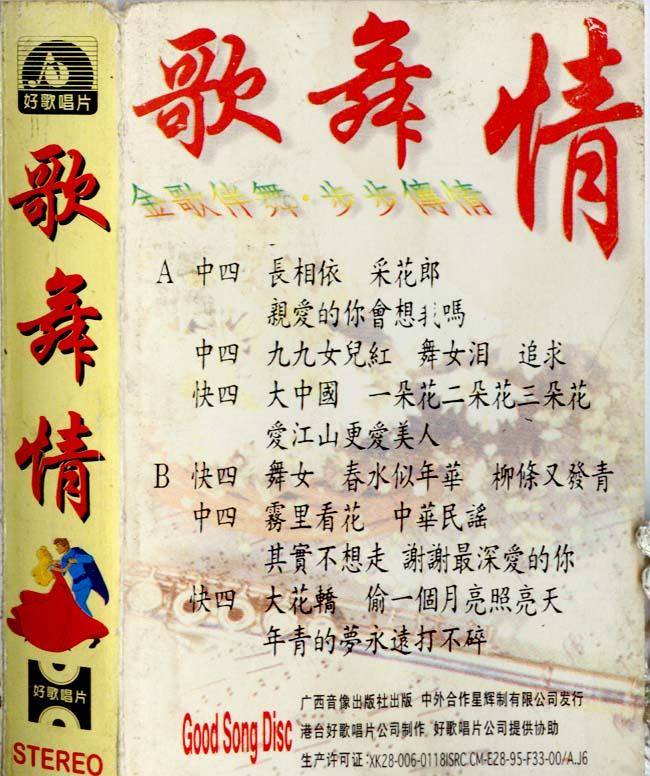 好歌唱片
歌舞情
好歌唱片
STEREO
歌舞情
金歌伴舞·步步傳情
A 中四 長相依 采花郎
親愛的你會想我嗎
中四 九九女兒紅 舞女泪 追求
快四 大中國 一朵花二朵花三朵花
愛江山更愛美人
B 快四 舞女 春水似年華 柳條又發青
中四 霧里看花 中華民謠
其實不想走 謝謝最深愛的你
快四 大花轎 偷一個月亮照亮天
年青的夢永遠打不碎
Good Song Disc
广西音像出版社出版 中外合作星辉制有限公司发行
港台好歌唱片公司制作 好歌唱片公司提供协助
生产许可证:XK28-006-0118ISRC.CM-E28-95-F33-00/A.J6